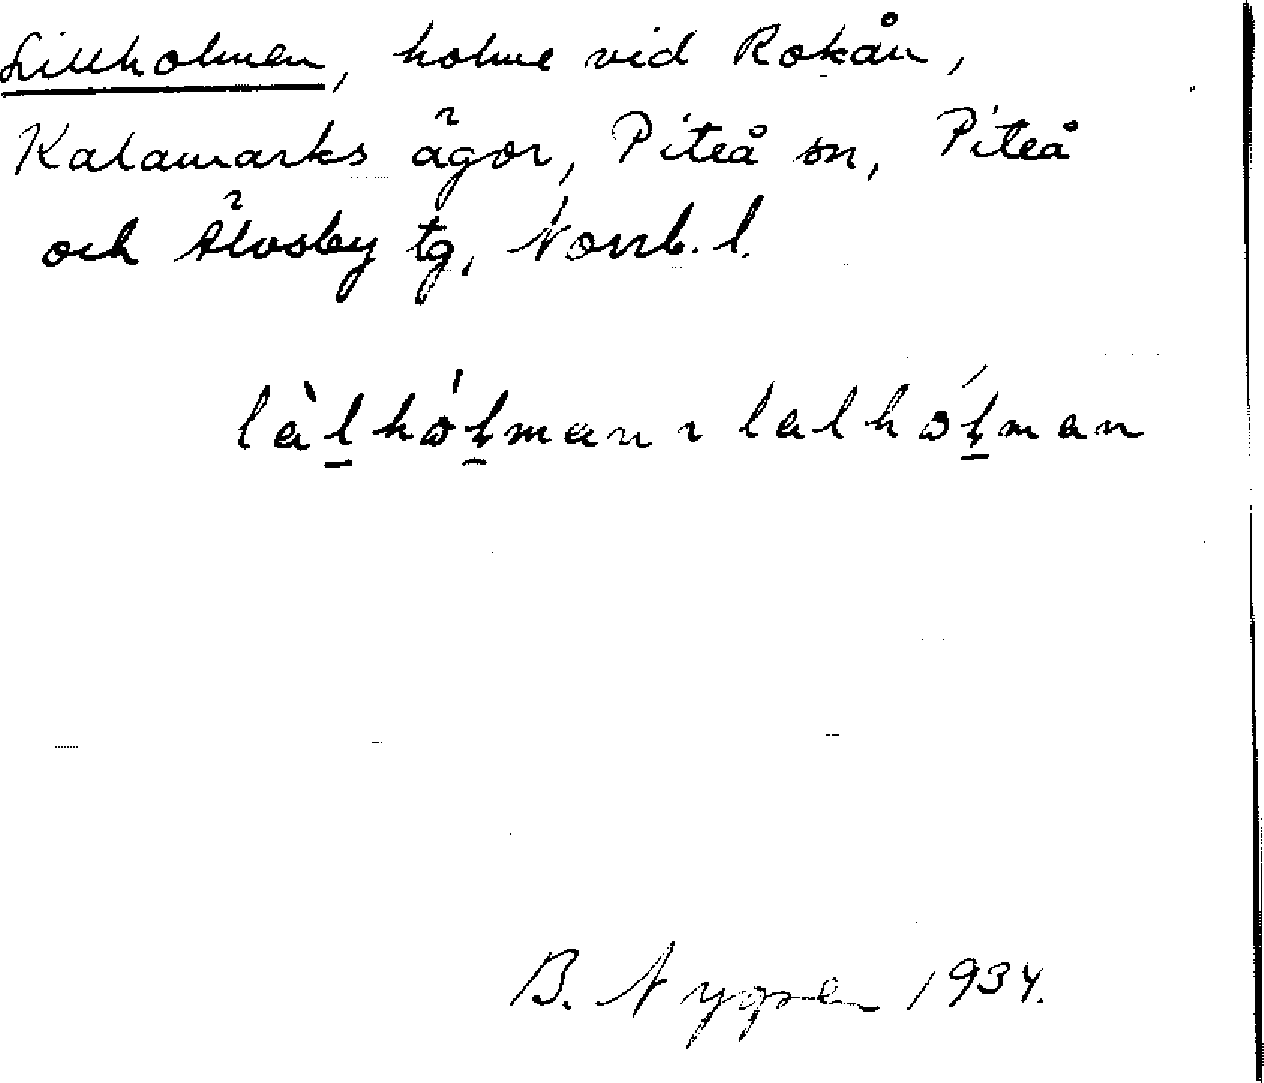 Lillholmen, holme vid Rokån,
Kalamarks ägor, Piteå sn, Piteå
och Älvsby tg, Norrb. l.
làl̠hól̠man ~ lalhól̠man
B. Nygren 1934.